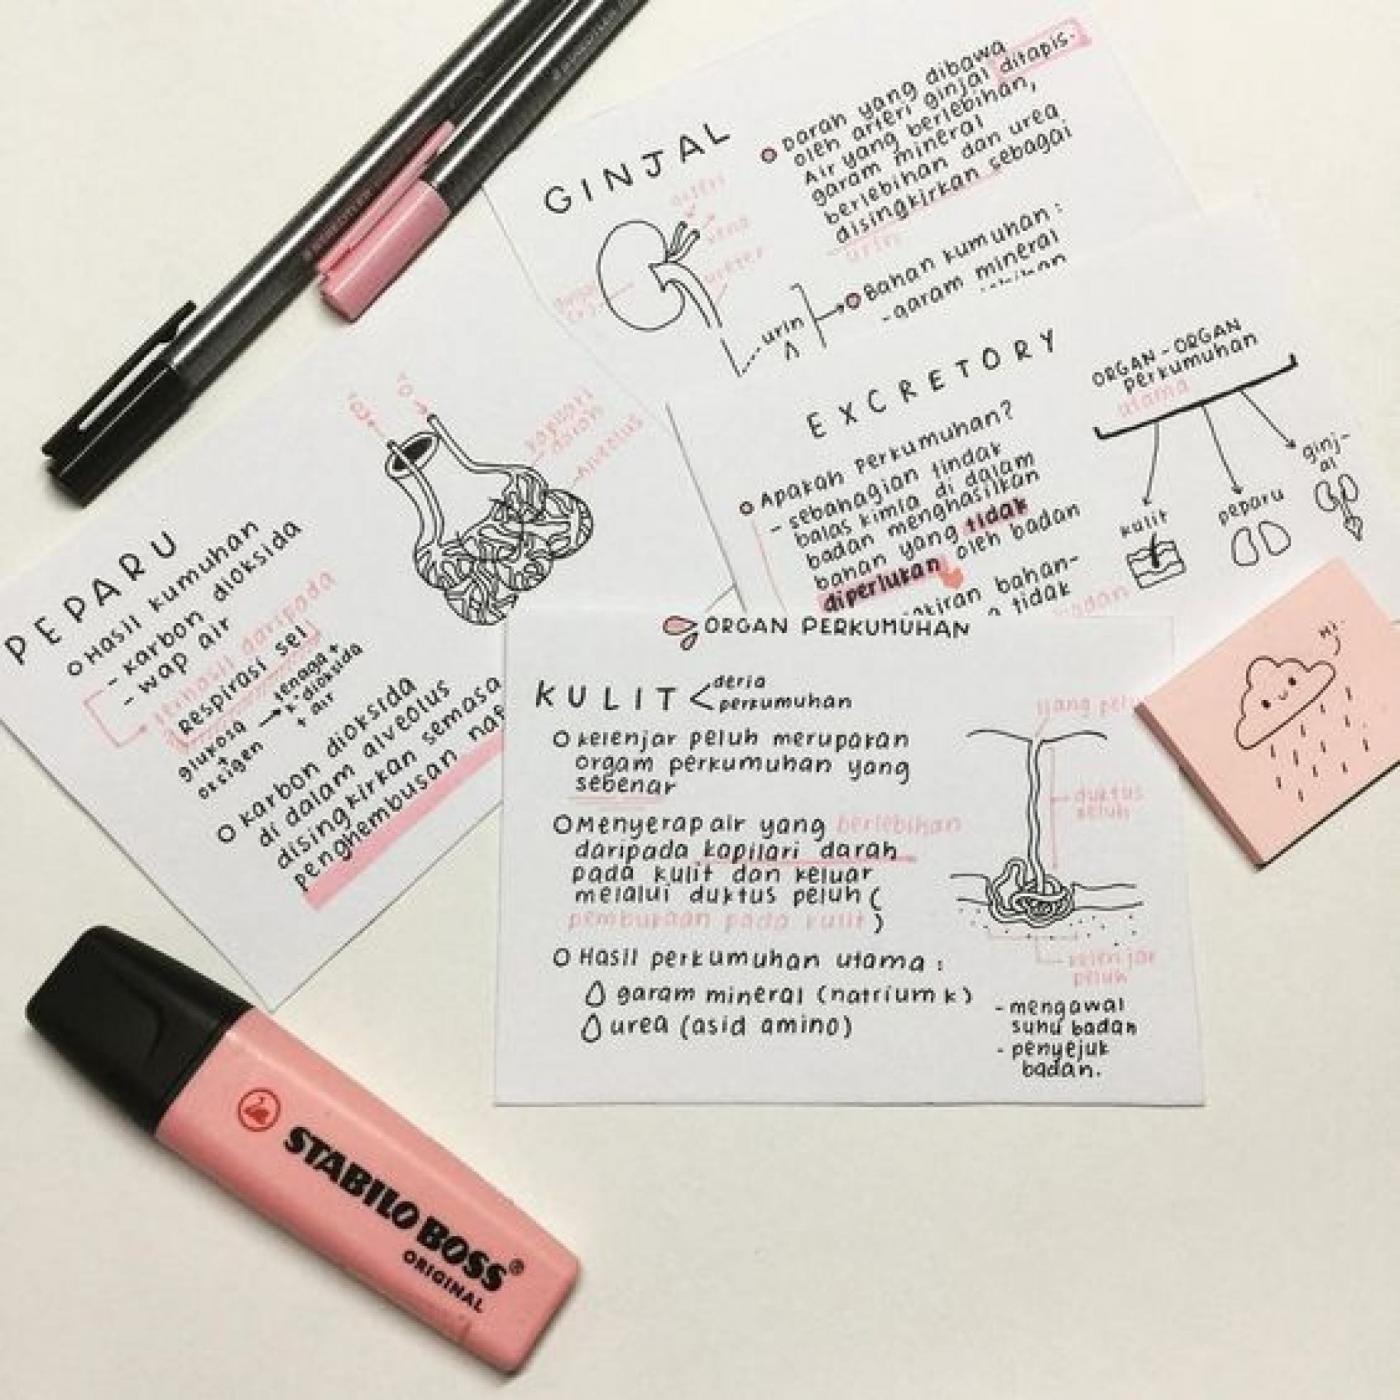 GINJAL
Darah yang dibawa
oleh arteri ginjal ditapis.
Air yang berlebihan,
garam mineral
berlebihan dan urea
disingkirkan sebagai
urin
arteri
vena
ureter
urin
Bahan kumuhan:
- garam mineral
EXCRETORY
Apakah Perkumuhan?
- sebahagian tindak
balas kimia di dalam
badan menghasilkan
bahan yang tidak
diperlukan oleh badan
bahan-
tidak
badan
ORGAN-ORGAN
perkumuhan
utama
kulit
peparu
ginj-
al
PEPARU
Hasil kumuhan
- karbon dioksida
- wap air
terhasil daripada
Respirasi sel
glukosa → tenaga +
+ k'dioksida
oksigen + air
karbon dioksida
di dalam alveolus
disingkirkan semasa
penghembusan naf
kapilari
darah
Alveolus
ORGAN PERKUMUHAN
KULIT < deria
perkumuhan
kelenjar peluh merupakan
orgam perkumuhan yang
sebenar
Menyerap air yang berlebihan
daripada kapilari darah
pada kulit dan keluar
melalui duktus peluh (
pembukaan pada kulit)
Hasil perkumuhan utama:
garam mineral (natrium k)
urea (asid amino)
liang pelu
duktus
peluh
kelenjar
peluh
- mengawal
suhu badan
- penyejuk
badan.
Hi.
STABILO BOSS®
ORIGINAL